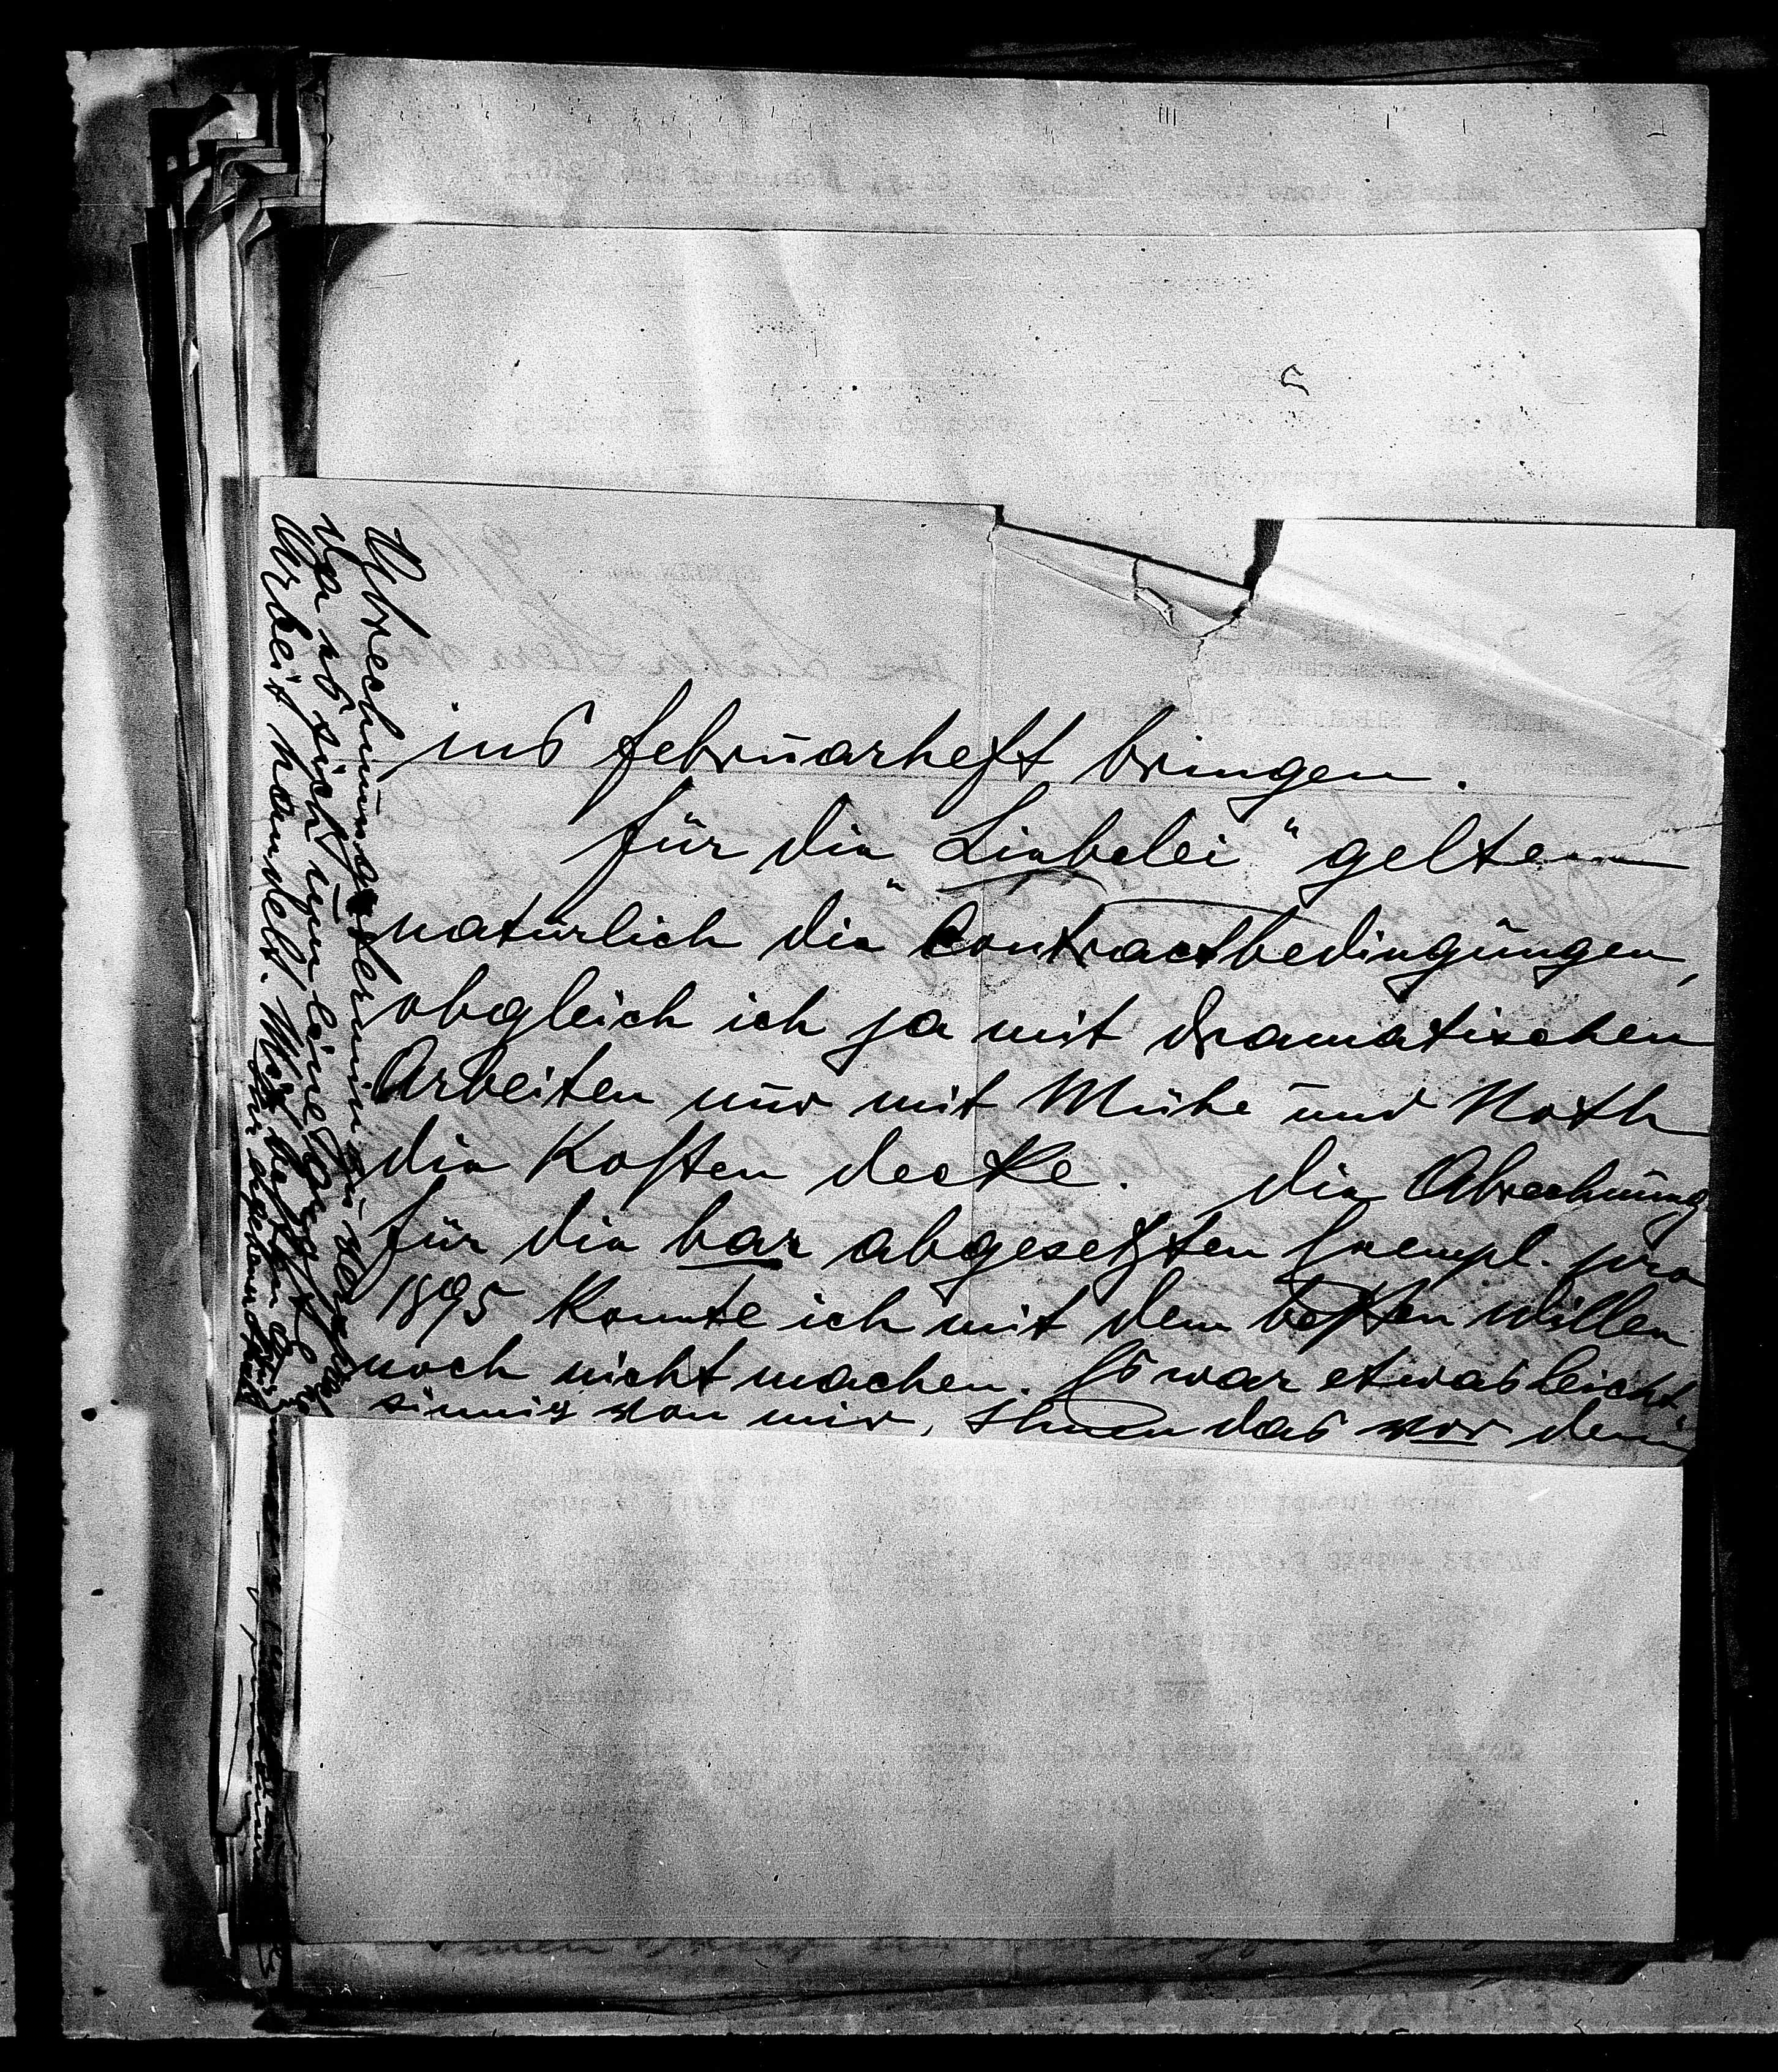 ins Februarheft bringen.
Für die „Liebelei" gelten
natürlich die Contractbedingungen,
obgleich ich ja mit dramatischen
Arbeiten nur mit Mühe und Noth
die Kosten decke. Die Abrechnung
für die bar abgesetzten Exempl. pro
1895 konnte ich mit dem besten Willen
noch nicht machen. Es war etwas leicht-
sinnig von mir, Ihnen das vor dem
Abrechnungstermin zu
da es sich um eine
Arbeit handelt. Mit besten
Ihr ergebener